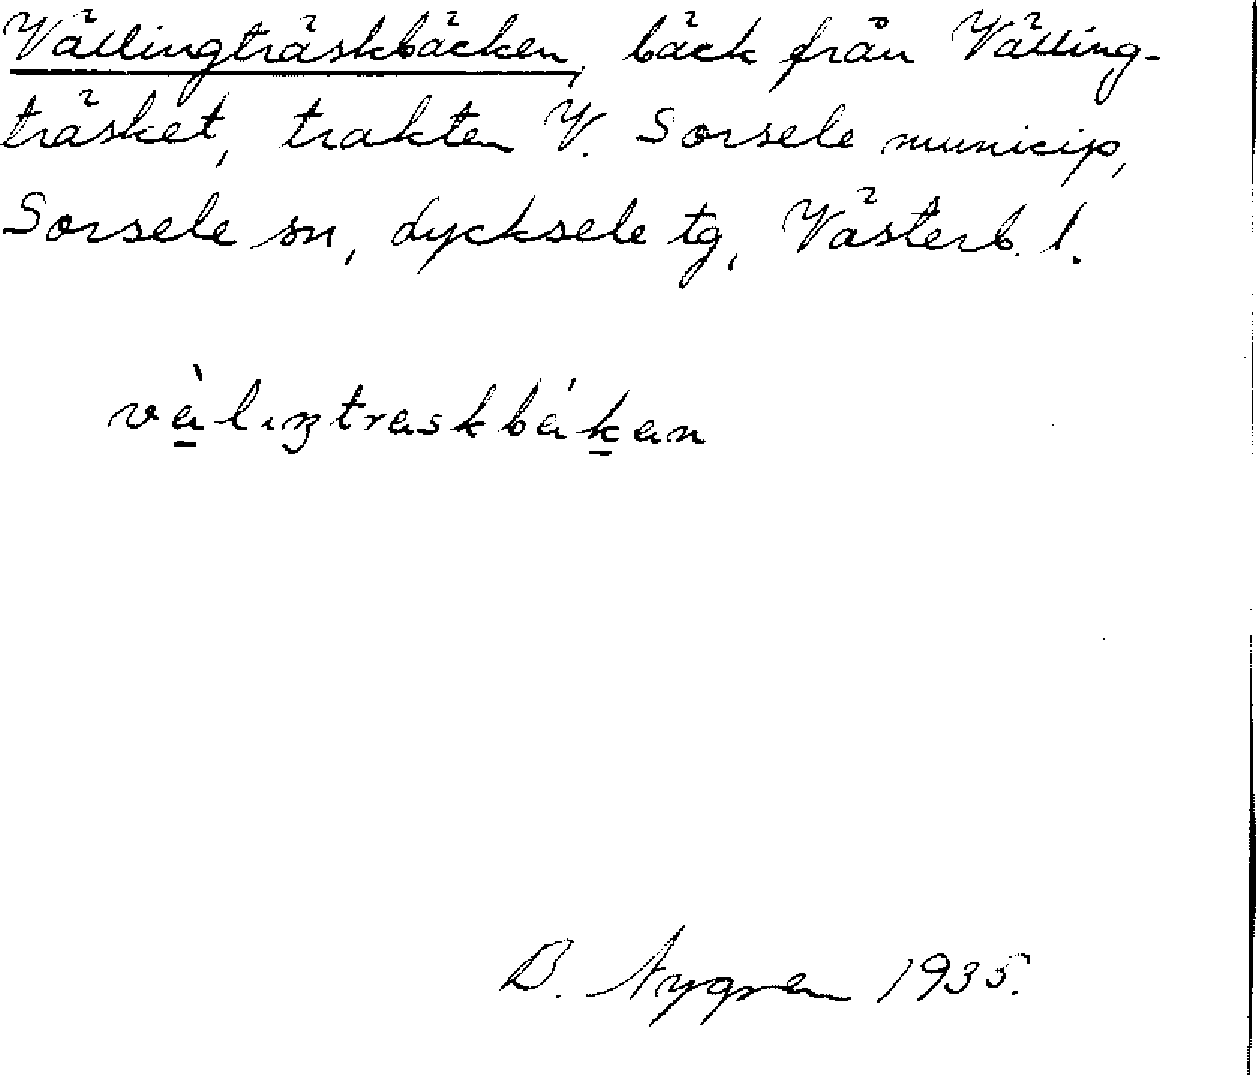 Vällingträskbäcken, bäck från Välling-
träsket, trakten V. Sorsele municip,
Sorsele sn, Lycksele tg, Västerb. l.
vàlıŋtraskbákan
B. Nygren 1935.